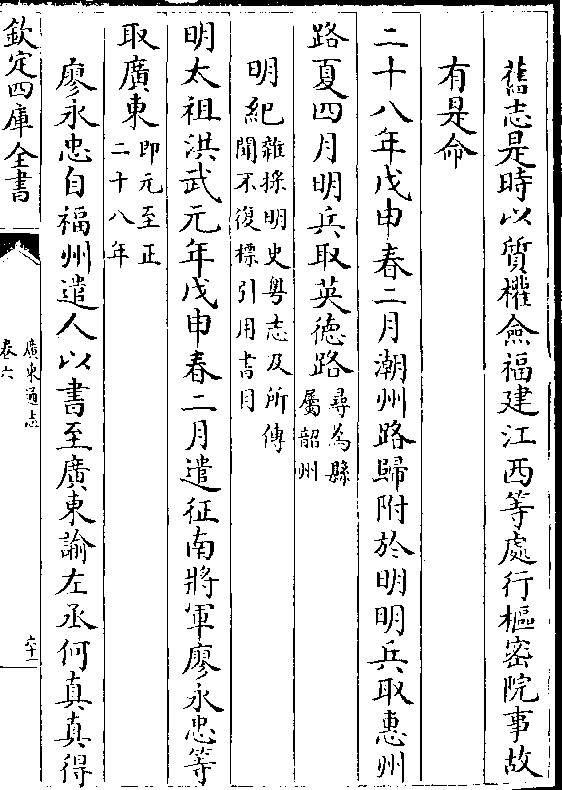 舊志是時以質權僉福建江西等處行樞密院事故
有是命
二十八年戊申春二月潮州路歸附於明明兵取惠州
路夏四月明兵取英德路尋為縣
屬韶州
明紀雜採明史粵志及所傳
聞不復標引用書目
明太祖洪武元年戊申春二月遣征南將軍廖永忠等
取廣東即元至正
二十八年
廖永忠自福州遣人以書至廣東諭左丞何真真得
欽定四庫全書
廣東通志
卷六
六十二